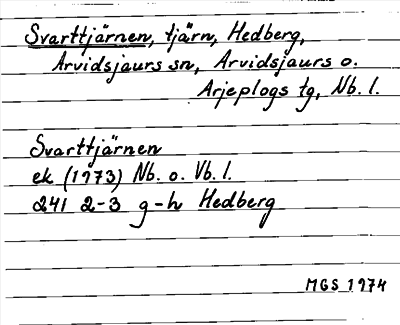 Svarttjärnen, tjärn, Hedberg,
Arvidsjaurs sn, Arvidsjaurs o.
Arjeplogs tg, Nb. l.
Svarttjärnen
ek (1973) Nb. o. Vb. l.
241 2-3 g-h Hedberg
MGS 1974